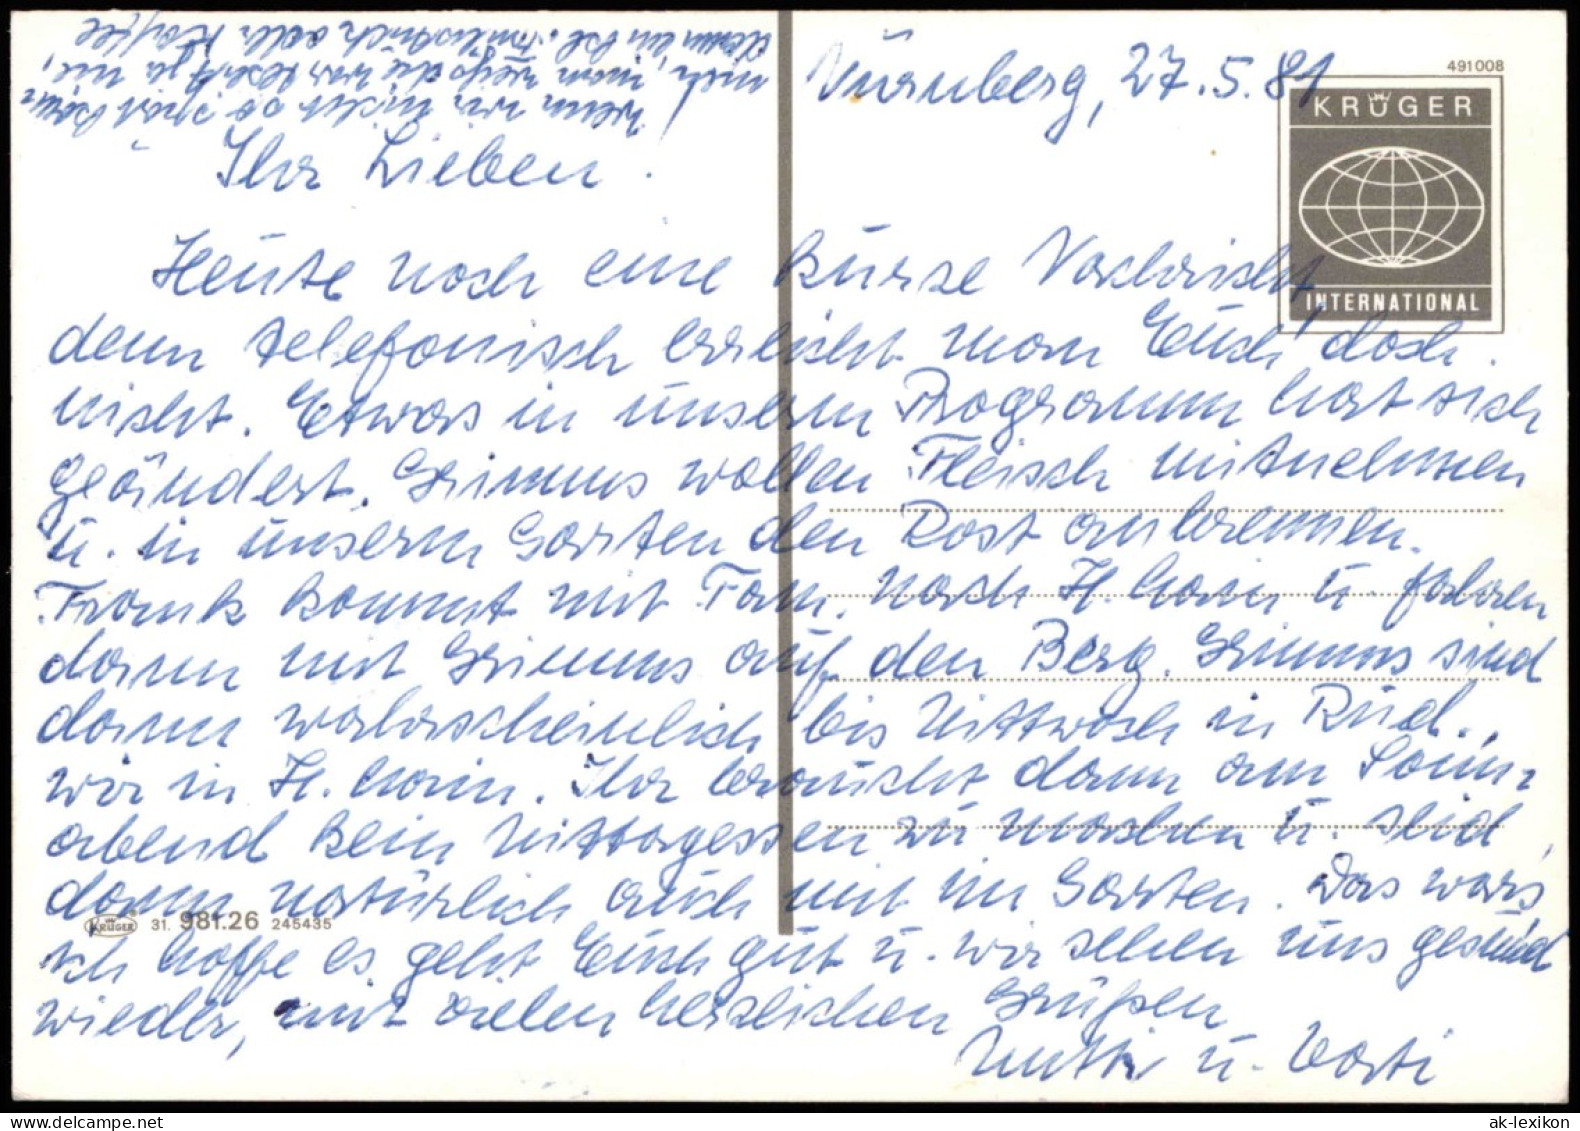 Nürnberg, 27.5.81
491008
KRÜGER
INTERNATIONAL
Ihr Lieben.
Heute noch eine kurze Nachricht,
denn telefonisch erreicht man Euch doch
nicht. Etwas in unserm Programm hat sich
geändert. Grimms wollen Fleisch mitnehmen
u. in unserm Garten den Rost anbrennen.
Frank kommt mit Fam. nach H. hain u. fahren
dann mit Grimms auf den Berg. Grimms sind
dann wahrscheinlich bis Mittwoch in Rud.,
wir in H. hain. Ihr braucht dann am Sonn-
abend kein Mittagessen zu machen u. seid
dann natürlich auch mit im Garten. Das wars,
ich hoffe es geht Euch gut u. wir sehen uns gesund
wieder, mit vielen herzlichen Grüßen
Mutti u. Vati
wenn wir nicht so spät
mich, man
denn ein oder Kaffee
KRÜGER 31. 981.26 245435
ak-lexikon.de